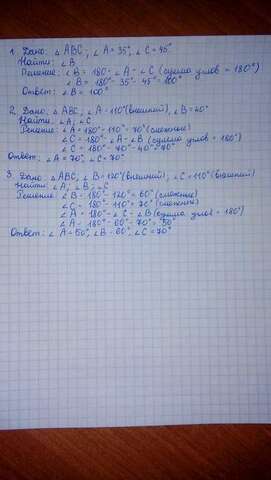 1. Дано: △ABC; ∠A=35°, ∠C=45°
Найти: ∠B
Решение: ∠B = 180 - ∠A - ∠C (сумма углов = 180°)
∠B = 180° - 35° - 45° = 100°
Ответ: ∠B = 100°
2. Дано: △ABC, ∠A - 110° (внешний), ∠B = 40°
Найти: ∠A; ∠C
Решение: ∠A = 180° - 110° = 70° (смежные)
∠C = 180° - ∠A - ∠B (сумма углов = 180°)
∠C = 180° - 70° - 40° = 70°
Ответ: ∠A = 70°; ∠C = 70°
3. Дано: △ABC, ∠B = 120° (внешний), ∠C = 110° (внешний)
Найти: ∠A; ∠B; ∠C
Решение: ∠B = 180° - 120° = 60° (смежные)
∠C = 180° - 110° = 70° (смежные)
∠A = 180° - ∠C - ∠B (сумма углов = 180°)
∠A = 180° - 60° - 70° = 50°
Ответ: ∠A = 50°, ∠B - 60°, ∠C = 70°